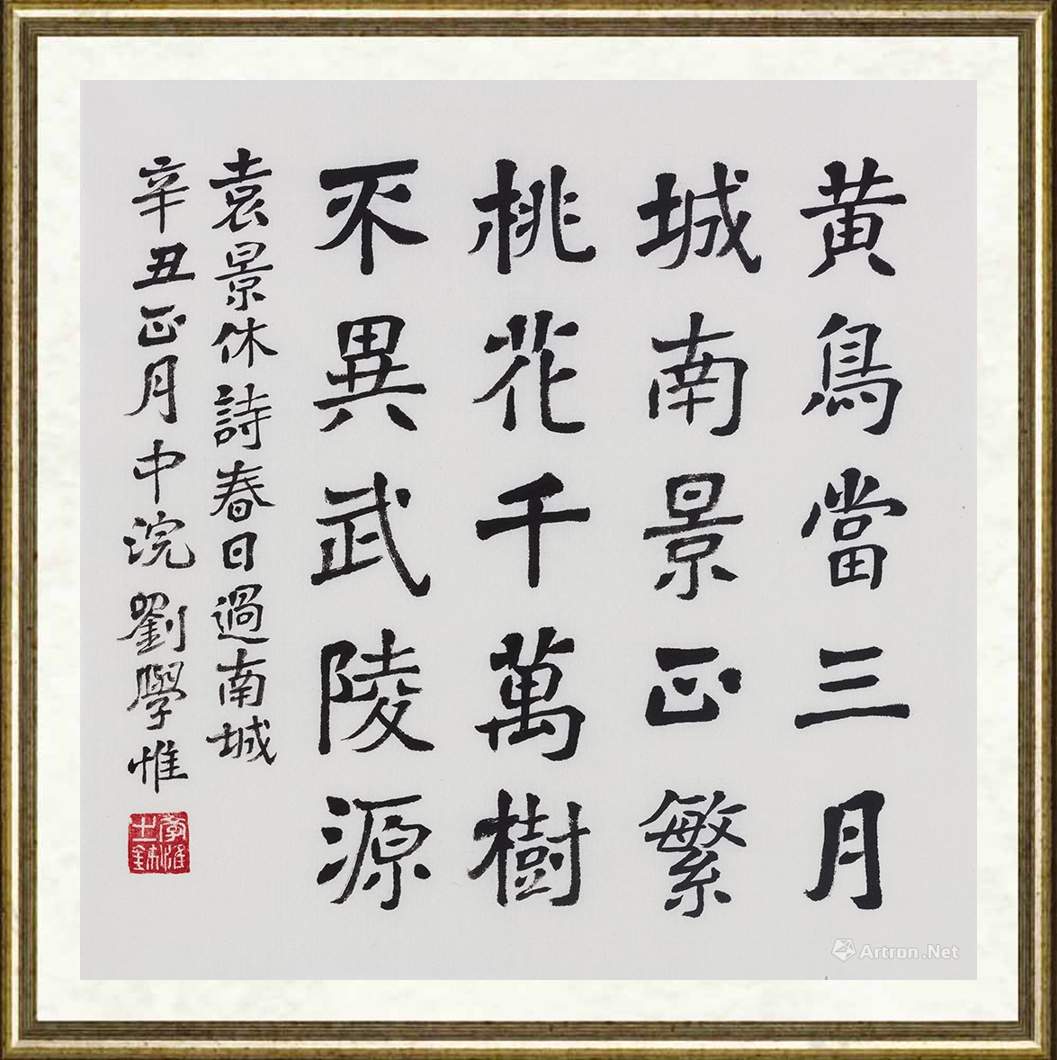 黄鳥當三月
城南景正繁
桃花千萬樹
不異武陵源
袁景休詩春日過南城
辛丑正月中浣劉學惟
Artron.Net